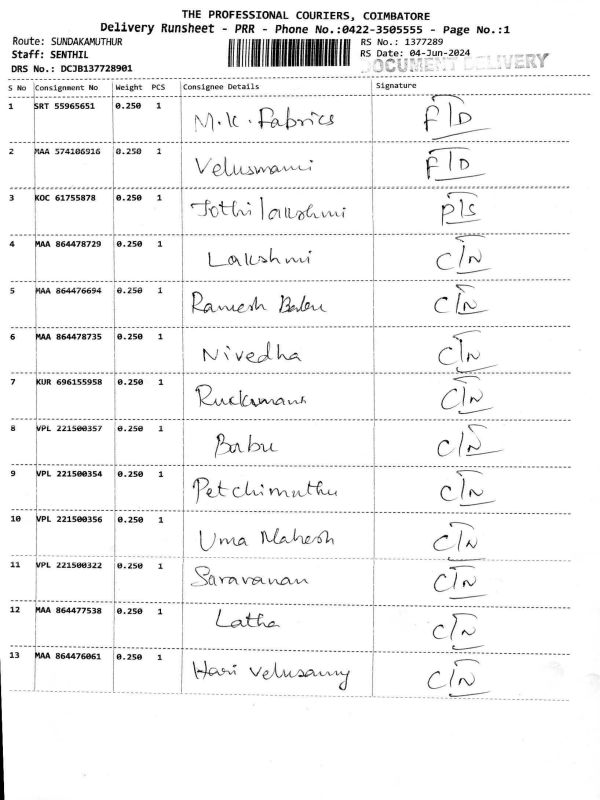 THE PROFESSIONAL COURIERS, COIMBATORE
Delivery Runsheet - PRR - Phone No.:0422-3505555 - Page No.:1
Route: SUNDAKAMUTHUR RS No.: 1377289
Staff: SENTHIL RS Date: 04-Jun-2024
DRS No.: DCJB137728901 DOCUMENT DELIVERY
S No Consignment No Weight PCS Consignee Details Signature
1 SRT 55965651 0.250 1 M.K. Fabrics F/D
2 MAA 574106916 0.250 1 Velusmami F/D
3 KOC 61755878 0.250 1 Jothilakshmi P/S
4 MAA 864478729 0.250 1 Lakshmi C/N
5 MAA 864476694 0.250 1 Ramesh Babu C/N
6 MAA 864478735 0.250 1 Nivedha C/N
7 KUR 696155958 0.250 1 Ruckmani C/N
8 VPL 221500357 0.250 1 Babu C/N
9 VPL 221500354 0.250 1 Petchimuthu C/N
10 VPL 221500356 0.250 1 Uma Mahesh C/N
11 VPL 221500322 0.250 1 Saravanan C/N
12 MAA 864477538 0.250 1 Latha C/N
13 MAA 864476061 0.250 1 Hari Velusamy C/N